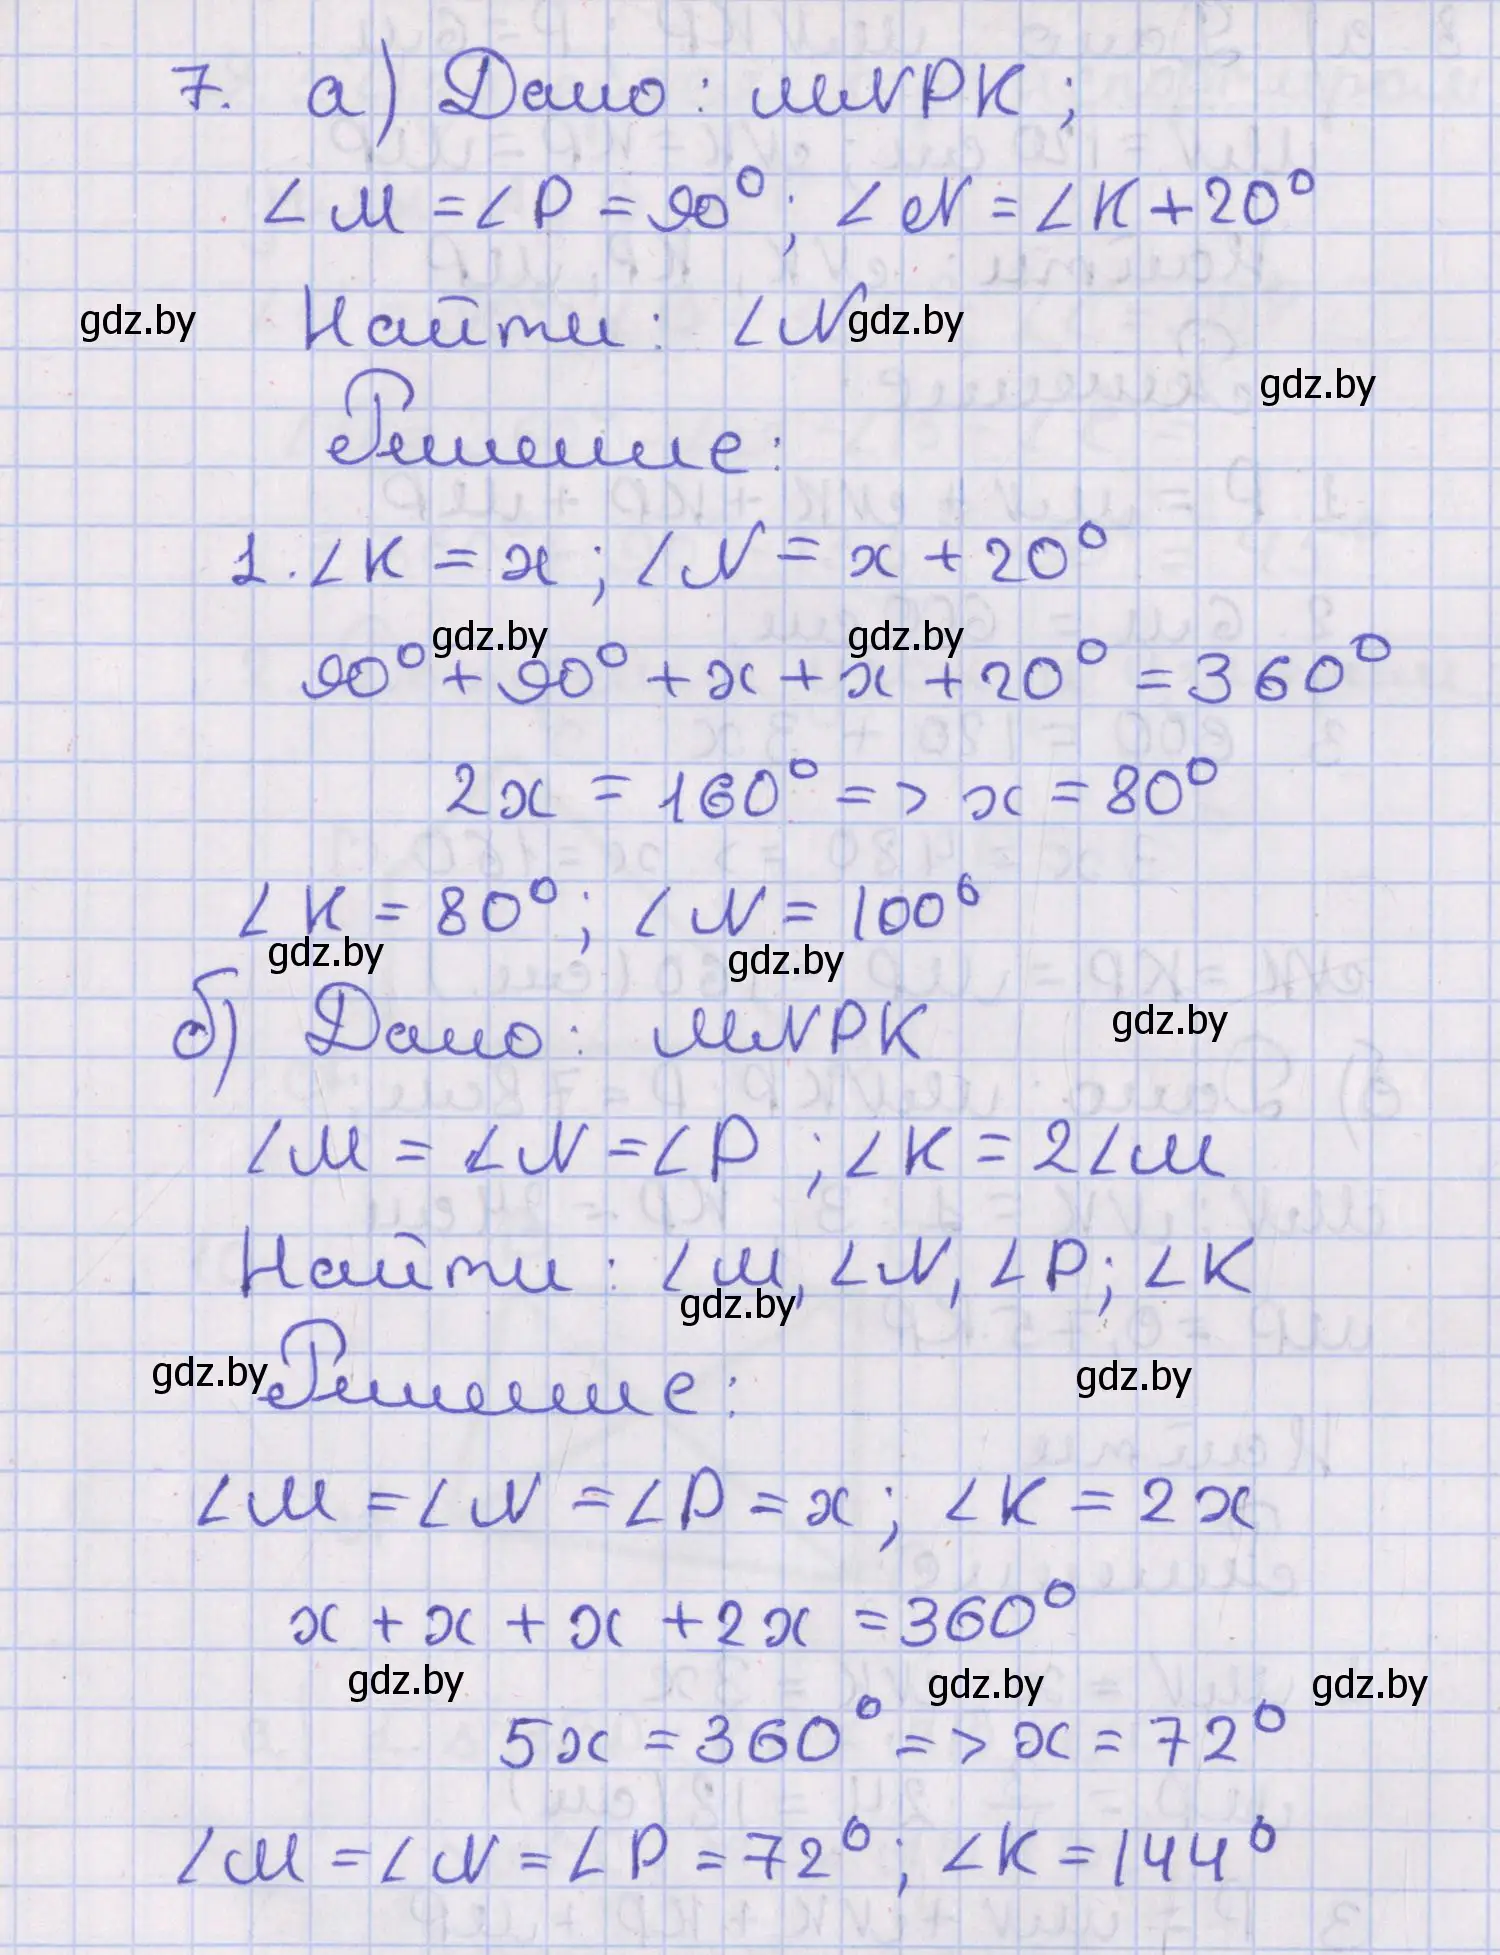 7. а) Дано: MNPK;
∠M = ∠P = 90°; ∠N = ∠K + 20°
Найти: ∠N
gdz.by gdz.by
gdz.by
Решение:
1. ∠K = x; ∠N = x + 20°
gdz.by gdz.by
90° + 90° + x + x + 20° = 360°
2x = 160° => x = 80°
∠K = 80°; ∠N = 100°
gdz.by gdz.by
б) Дано: MNPK
gdz.by
∠M = ∠N = ∠P; ∠K = 2∠M
Найти: ∠M, ∠N, ∠P; ∠K
gdz.by
Решение:
gdz.by gdz.by
∠M = ∠N = ∠P = x; ∠K = 2x
x + x + x + 2x = 360°
gdz.by gdz.by gdz.by
5x = 360° => x = 72°
∠M = ∠N = ∠P = 72°; ∠K = 144°